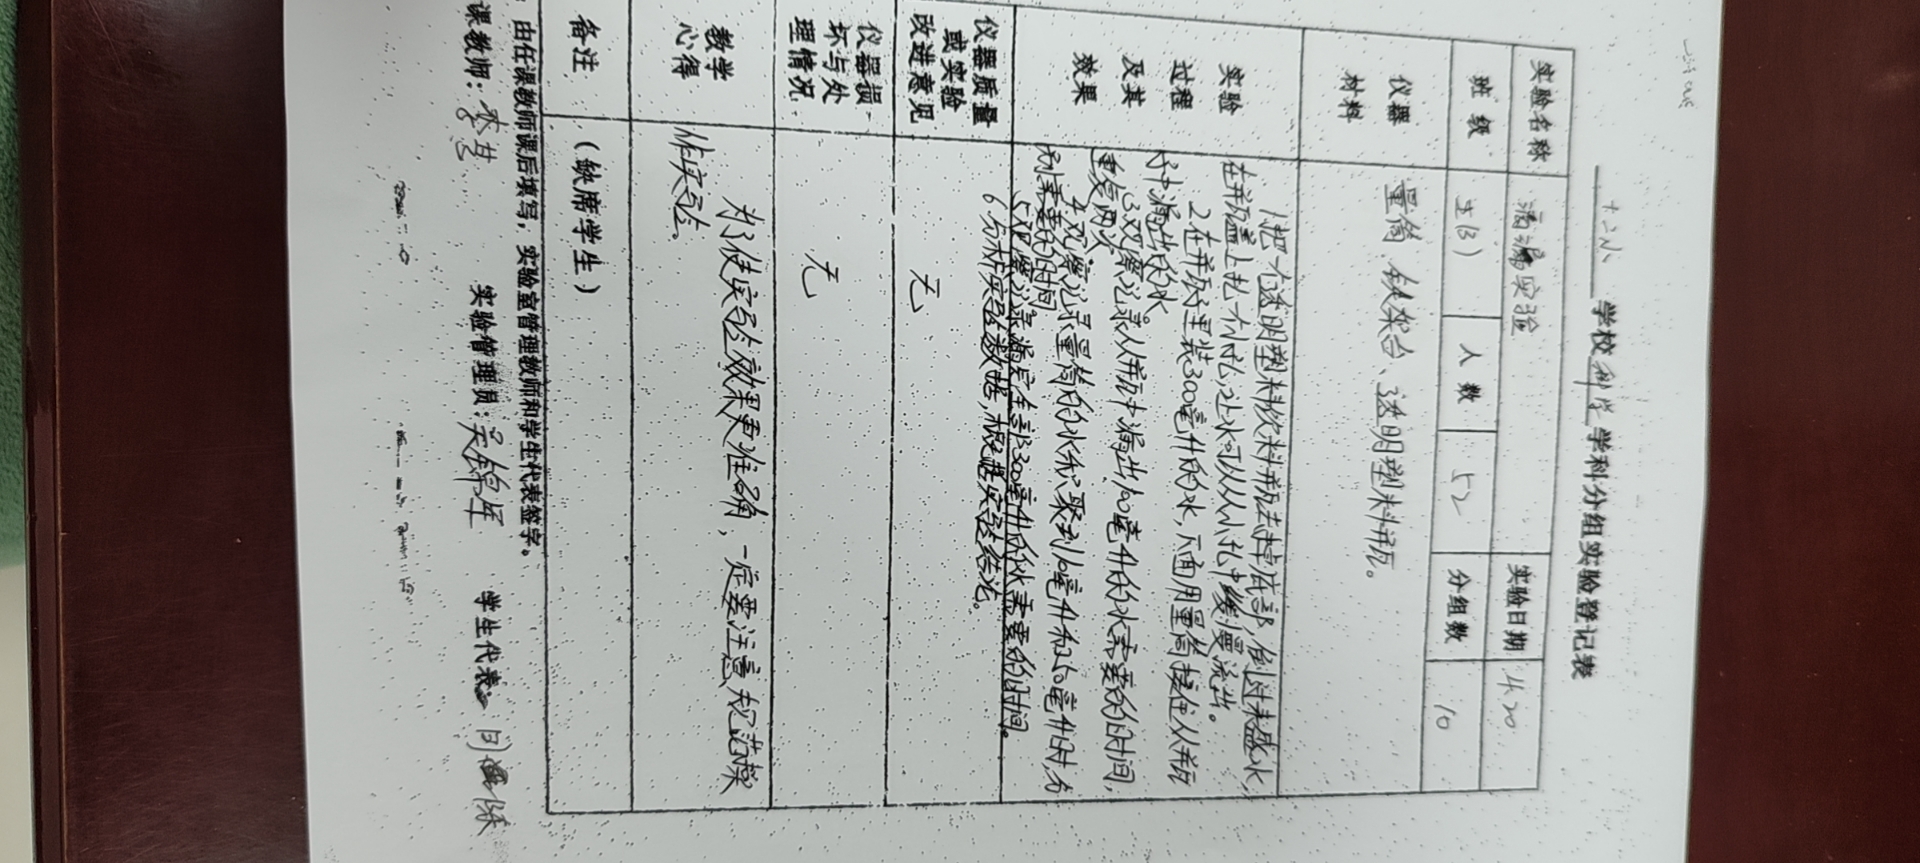 学校科学学科分组实验登记表
实验名称 滴漏实验 实验日期 4.20
班级 五(3) 人数 52 分组数 10
仪器材料 量筒、铁架台、透明塑料瓶。
实验过程及其效果
1.把一个透明塑料饮料瓶去掉底部,倒过来盛水,
在瓶盖上扎一个小孔,让水可以从小孔中缓慢流出。
2在瓶子里装300毫升的水,下面用量筒接住从瓶
子中漏出的水。
3观察记录从瓶中漏出100毫升的水需要的时间,
重复两次
4.观察记录量筒的水积聚到10毫升和250毫升时,分
别需要的时间
5观察记录漏完全部300毫升的水需要的时间。
6分析实验数据,根据实验结论。
仪器质量或实验改进意见 无
仪器损坏与处理情况 无
教学心得 为了使实验效果更准确,一定要注意规范操
作实验。
备注 (缺席学生)
由任课教师课后填写,实验室管理教师和学生代表签字。
课教师: 实验管理员: 学生代表